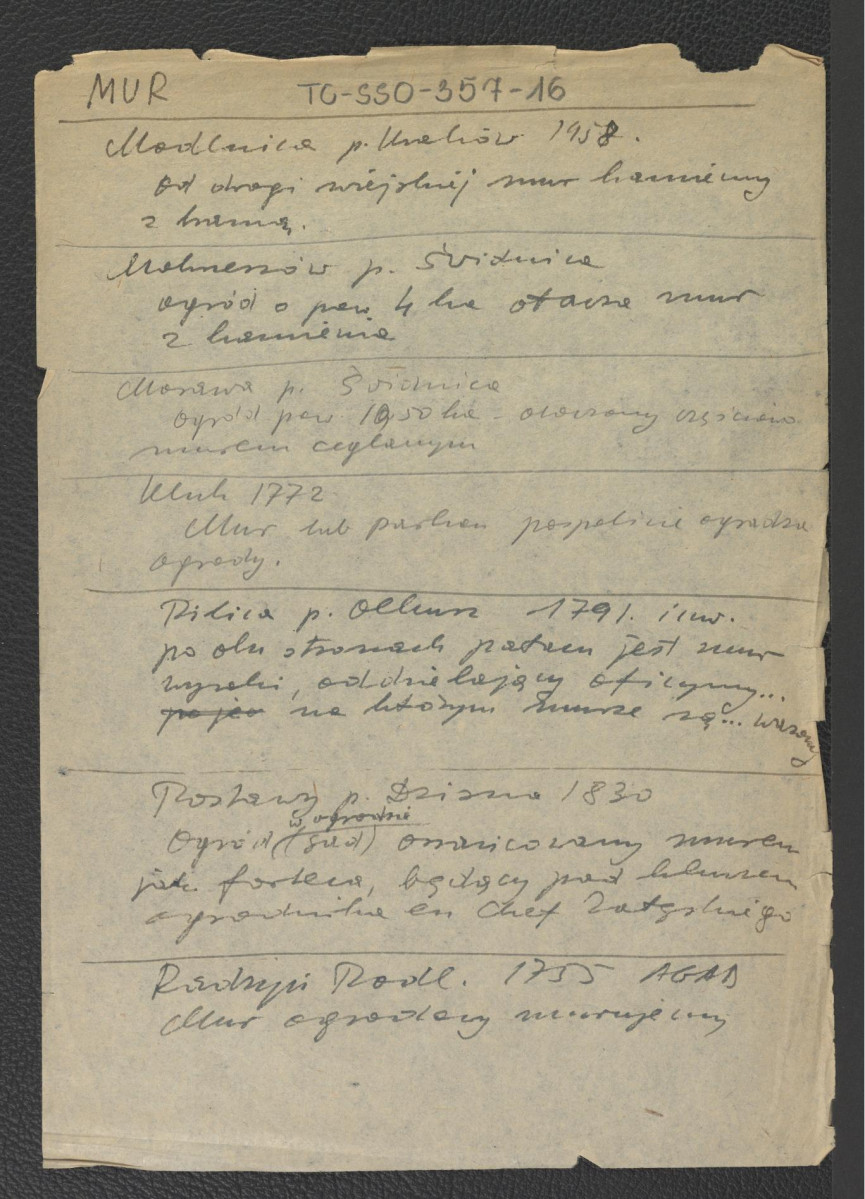 MUR TG-SSO-357-16
Modlnica p. Kraków 1958.
od drogi wiejskiej mur kamienny
z bramą.
p. Świdnica
ogród o pow. 4 ha otacza mur
z kamienia
Morawa p. Świdnica
ogród pow. 10,50 ha - otoczony częściowo
murem ceglanym
Kluk 1772
Mur lub parkan pospolicie ogradza
ogrody.
Pilica p. Olkusz 1791. inw.
po obu stronach pałacu jest mur
wysoki, oddzielający oficyny...
po jed na którym murze są... wazony
Postawy p. Dzisna 1830
w ogrodzie
Ogród (sad) oszańcowany murem
jak forteca, będący pod kluczem
ogrodnika en chef Załęskiego
Radzyń Podl. 1755 AGAD
Mur ogrodowy murujemy